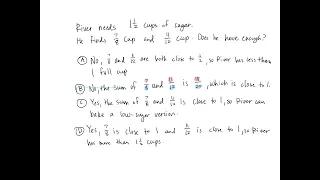 River needs 1 1/2 cups of sugar.
He finds 7/8 cup and cup. Does he have enough?
A No, 7/8 and are both close to 1/2, so River has less than
1 full cup
B No, the sum of 7/8 and is , which is close to 1.
C Yes, the sum of 7/8 and is close to 1, so River can
bake a low-sugar version.
D Yes, 7/8 is close to 1 and is close to 1, so River
has more than 1 1/2 cups.